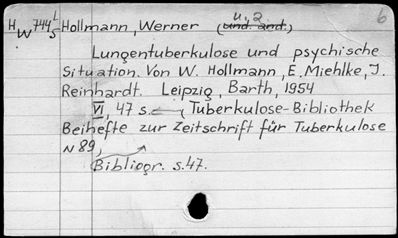 6
u. a.
H W 744 L S Hollmann, Werner (und. and.)
Lungentuberkulose und psychische
Situation. Von W. Hollmann, E. Miehlke, J.
Reinhardt. Leipzig, Barth, 1954
VI, 47 s. (Tuberkulose-Bibliothek
Beihefte zur Zeitschrift für Tuberkulose
N 89)
Bibliogr. s. 47.